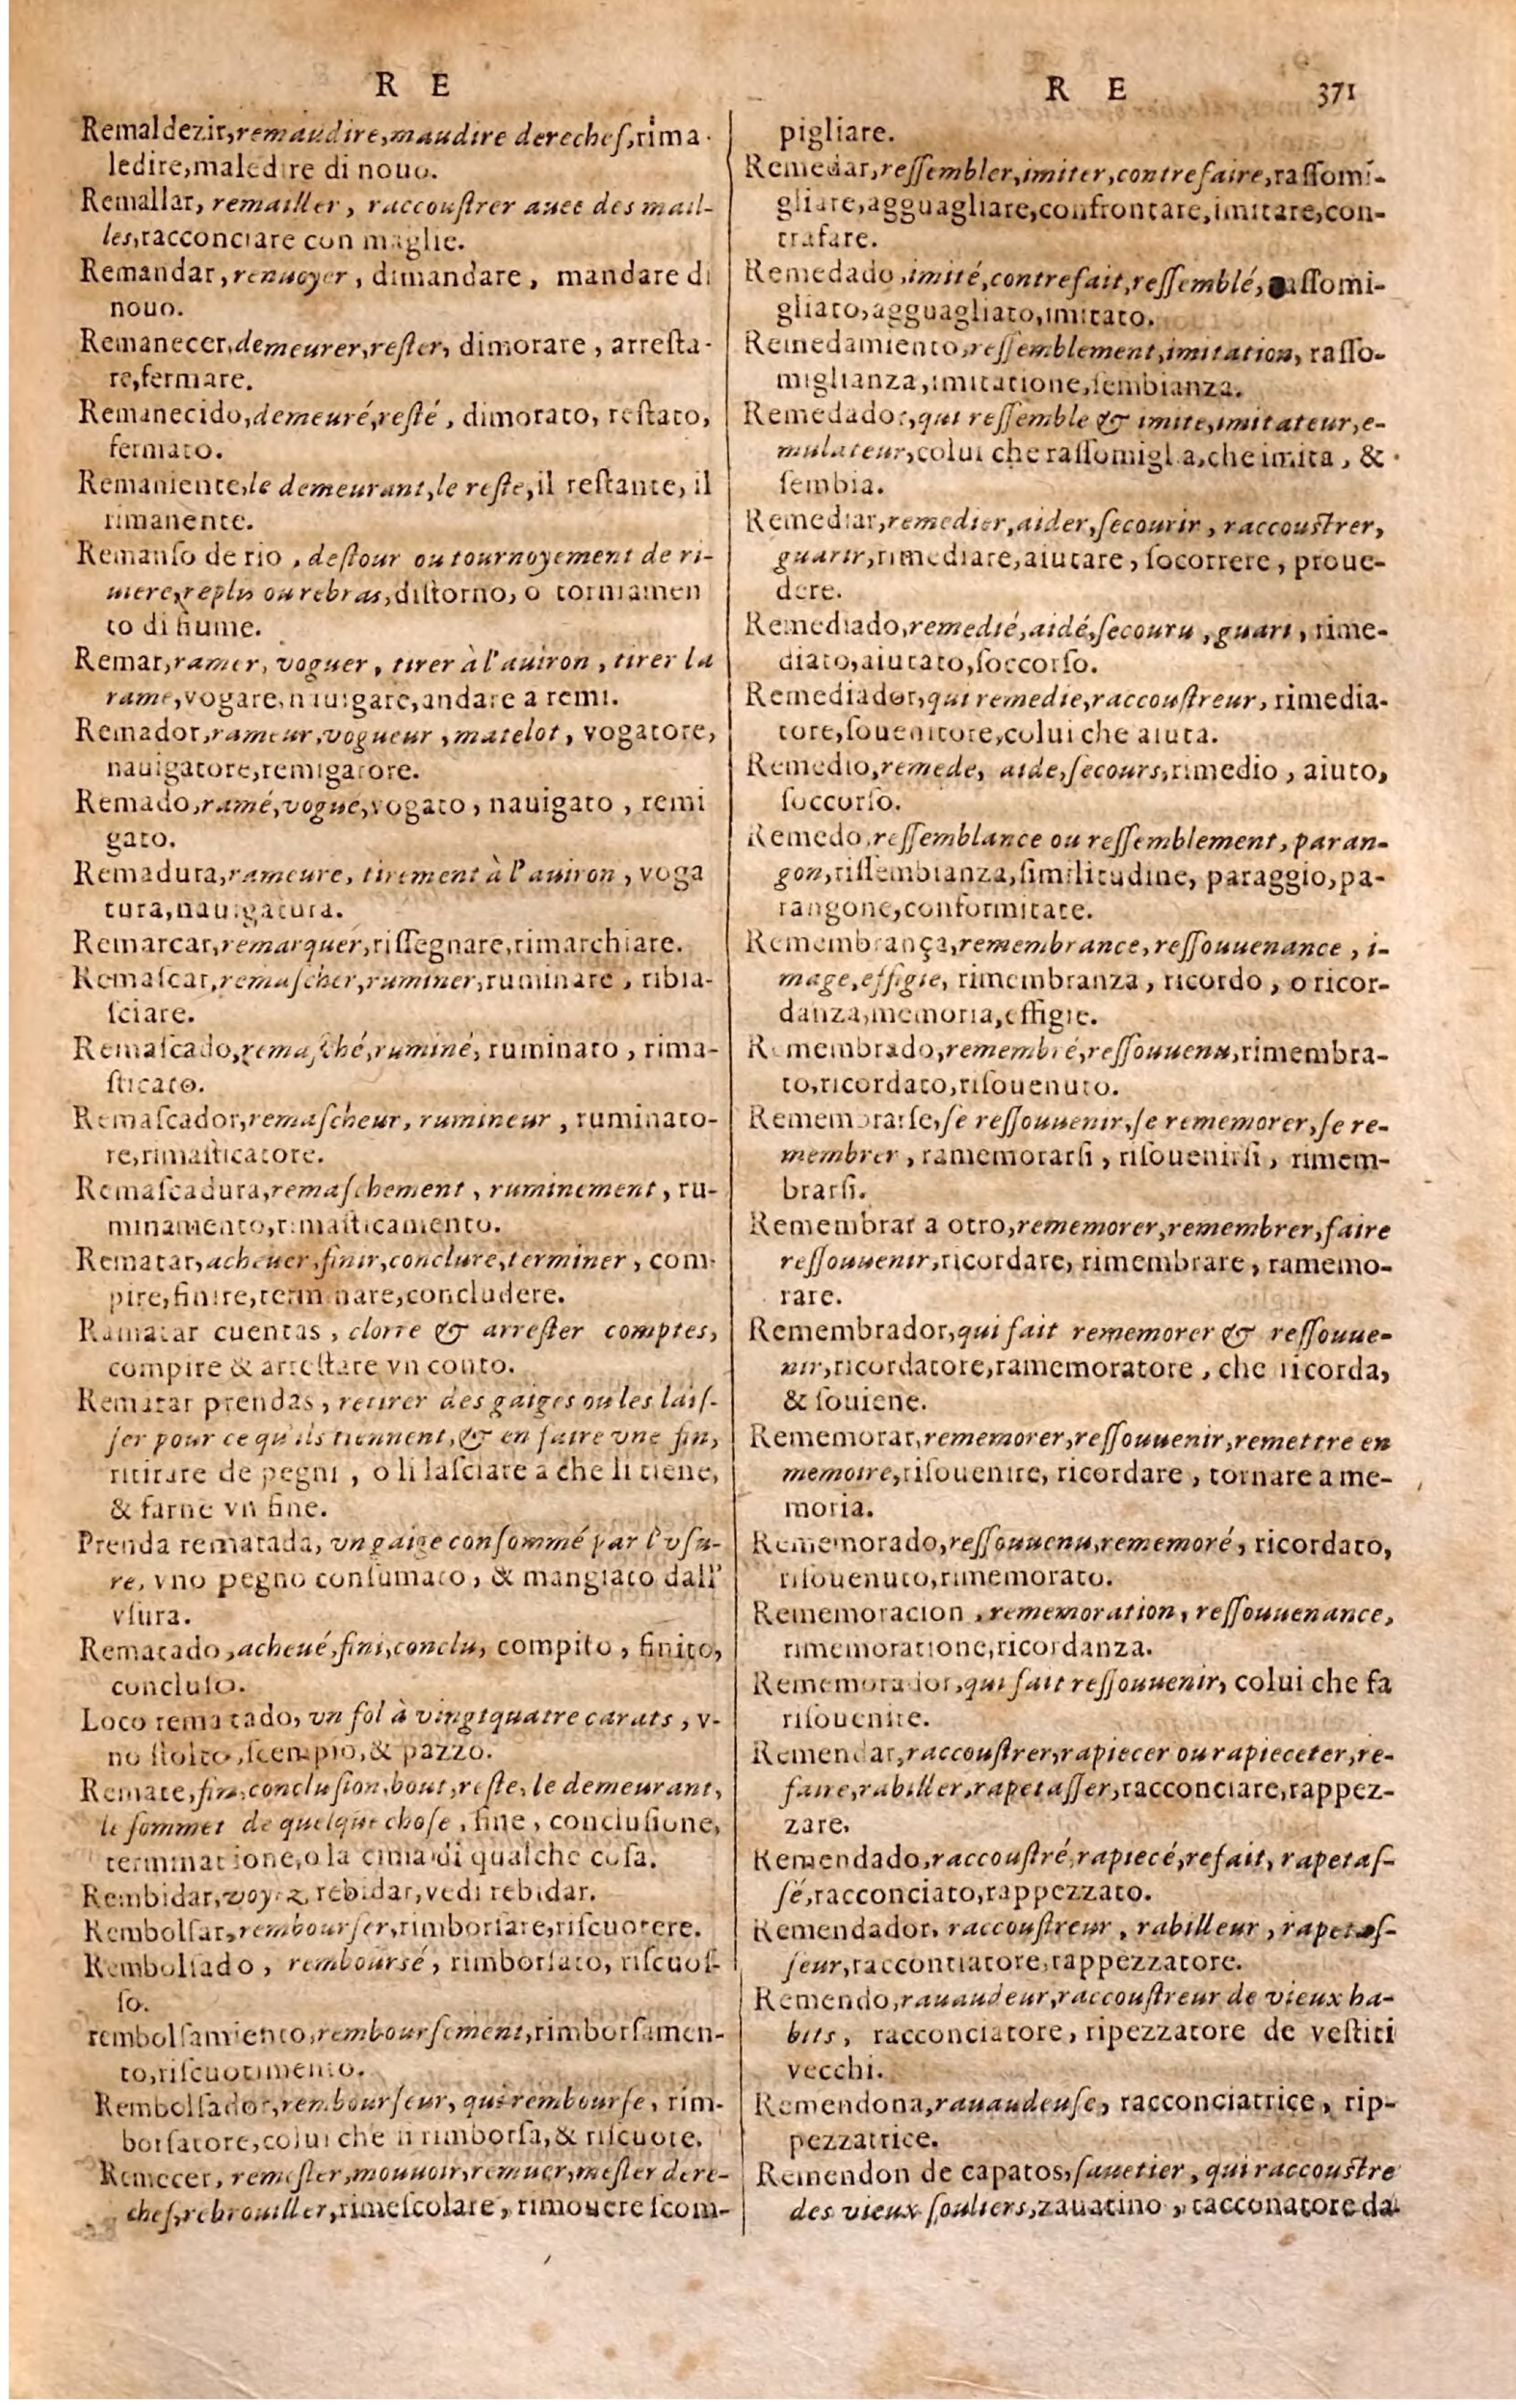 R E
Remaldezir,remaudire,maudire derechef,rima-
ledire,maledire di nouo.
Remallar, remailler, raccouſtrer auec des mail-
les,racconciare con maglie.
Remandar, renuoyer, dimandare, mandare di
nouo.
Remanecer,demeurer,reſter, dimorare, arreſta-
re,fermare.
Remanecido,demeuré,reſté, dimorato, reſtato,
fermato.
Remaniente,le demeurant,le reſte,il reſtante, il
rimanente.
Remanſo de rio, deſtour ou tournoyement de ri-
uiere,replis ou rebras,diſtorno, o torniamen
to di fiume.
Remar,ramer, voguer, tirer à l'auiron, tirer la
rame,vogare,nauigare,andare a remi.
Remador,rameur,vogueur, matelot, vogatore,
nauigatore,remigatore.
Remado,ramé,vogué,vogato, nauigato, remi
gato.
Remadura,rameure, tirement à l'auiron, voga
tura,nauigatura.
Remarcar,remarquer,riſſegnare,rimarchiare.
Remaſcar,remaſcher,ruminer,ruminare, ribia-
ſciare.
Remaſcado,remaſché,ruminé, ruminato, rima-
ſticato.
Remaſcador,remaſcheur, rumineur, ruminato-
re,rimaſticatore.
Remaſcadura,remaſchement, ruminement, ru-
minamento,rimaſticamento.
Rematar,acheuer,finir,conclure,terminer, com-
pire,finire,terminare,concludere.
Ramatar cuentas, clorre & arreſter comptes,
compire & arreſtare vn conto.
Rematar prendas, retirer des gaiges ou les laiſ-
ſer pour ce qu'ils tiennent,& en faire vne fin,
ritirare de pegni, o li laſciare a che li tiene,
& farne vn fine.
Prenda rematada, vn gaige conſommé par l'vſu-
re, vno pegno conſumato, & mangiato dall'
vſura.
Rematado,acheué,fini,conclu, compito, finito,
concluſo.
Loco rematado, vn fol à vingtquatre carats, v-
no ſtolto,ſcempio,& pazzo.
Remate,fin,concluſion,bout,reſte, le demeurant,
le ſommet de quelque choſe, fine, concluſione,
terminatione,o la cima di qualche coſa.
Rembidar,voyez rebidar,vedi rebidar.
Rembolſar,rembourſer,rimborſare,riſcuotere.
Rembolſado, rembourſé, rimborſato, riſcuoſ-
ſo.
rembolſamiento,rembourſement,rimborſamen-
to,riſcuotimento.
Rembolſador,rembourſeur, qui rembourſe, rim-
borſatore,colui che ſi rimborſa,& riſcuote.
Remecer, remeſler,mouuoir,remuer,meſler dere-
chef,rebrouiller,rimeſcolare, rimouere ſcom-
R E 371
pigliare.
Remedar,reſſembler,imiter,contrefaire,raſſomi-
gliare,agguagliare,confrontare,imitare,con-
trafare.
Remedado,imité,contrefait,reſſemblé, raſſomi-
gliato,agguagliato,imitato.
Remedamiento,reſſemblement,imitation, raſſo-
miglianza,imitatione,ſembianza.
Remedador,qui reſſemble & imite,imitateur,e-
mulateur,colui che raſſomiglia,che imita, &
ſembia.
Remediar,remedier,aider,ſecourir, raccouſtrer,
guarir,rimediare,aiutare, ſocorrere, proue-
dere.
Remediado,remedié,aidé,ſecouru, guari, rime-
diato,aiutato,ſoccorſo.
Remediador,qui remedie,raccouſtreur, rimedia-
tore,ſouenitore,colui che aiuta.
Remedio,remede, aide,ſecours,rimedio, aiuto,
ſoccorſo.
Remedo,reſſemblance ou reſſemblement, paran-
gon,riſſembianza,ſimilitudine, paraggio,pa-
rangone,conformitate.
Remembrança,remembrance,reſſouuenance, i-
mage,effigie, rimembranza, ricordo, o ricor-
danza,memoria,effigie.
Remembrado,remembré,reſſouuenu,rimembra-
to,ricordato,riſouenuto.
Rememorarſe,ſe reſſouuenir,ſe rememorer,ſe re-
membrer, ramemorarſi, riſouenirſi, rimem-
brarſi.
Remembrar a otro,rememorer,remembrer,faire
reſſouuenir,ricordare, rimembrare, ramemo-
rare.
Remembrador,qui fait rememorer & reſſouue-
nir,ricordatore,ramemoratore, che ricorda,
& ſouiene.
Rememorar,rememorer,reſſouuenir,remettre en
memoire,riſouenire, ricordare, tornare a me-
moria.
Rememorado,reſſouuenu,rememoré, ricordato,
riſouenuto,rimemorato.
Rememoracion, rememoration, reſſouuenance,
rimemoratione,ricordanza.
Rememorador,qui fait reſſouuenir, colui che fa
riſouenire.
Remendar,raccouſtrer,rapiecer ou rapieceter,re-
faire,rabiller,rapetaſſer,racconciare,rappez-
zare.
Remendado,raccouſtré,rapiecé,refait, rapetaſ-
ſé,racconciato,rappezzato.
Remendador, raccouſtreur, rabilleur, rapetaſ-
ſeur,racconciatore,rappezzatore.
Remendo,rauaudeur,raccouſtreur de vieux ha-
bits, racconciatore, ripezzatore de veſtiti
vecchi.
Remendona,rauaudeuſe, racconciatrice, rip-
pezzatrice.
Remendon de çapatos,ſauetier, qui raccouſtre
des vieux ſouliers,zauatino, tacconatore da